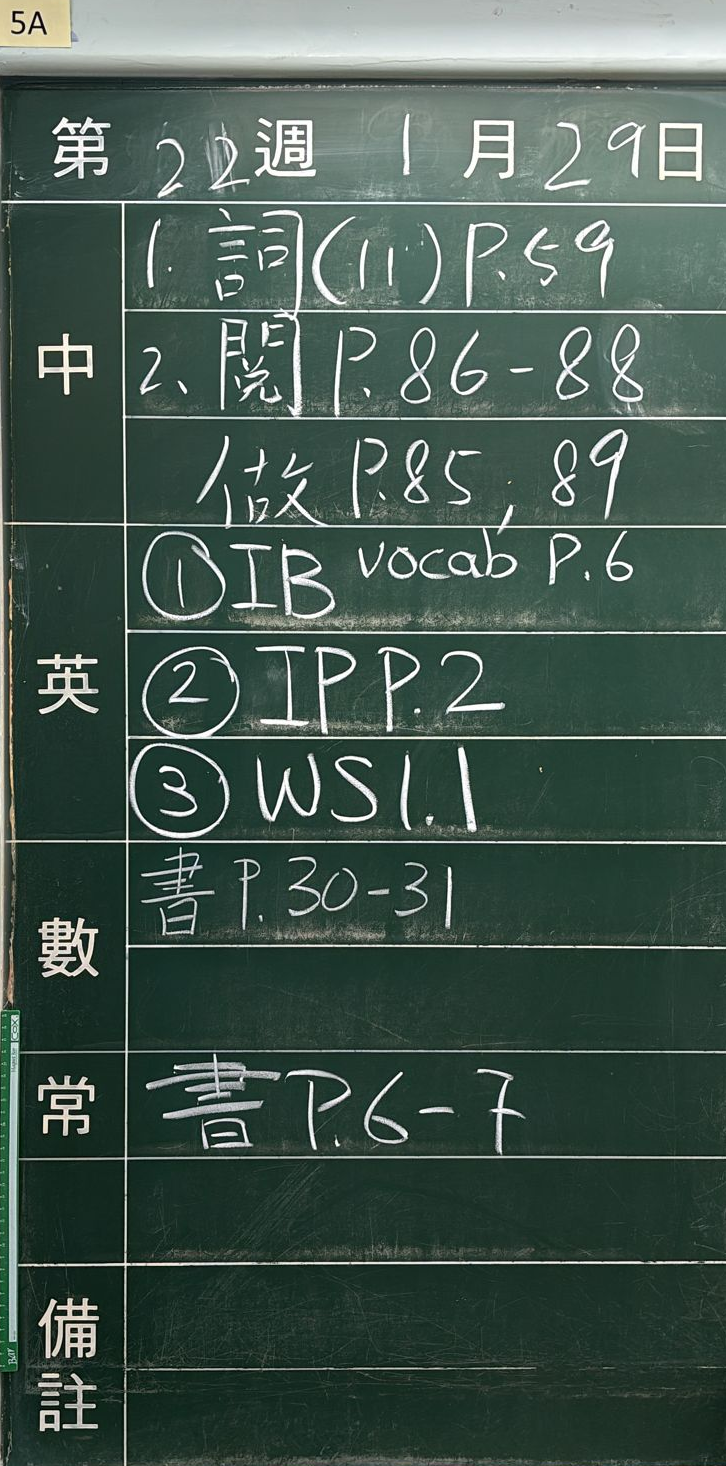 5A
第 22 週 1 月 29 日
中
1. 詞(11) P.59
2、閱 P. 86-88
做 P.85, 89
英
① IB vocab P.6
② IP P.2
③ WS 1.1
數
書 P. 30-31
常
書 P.6-7
備註